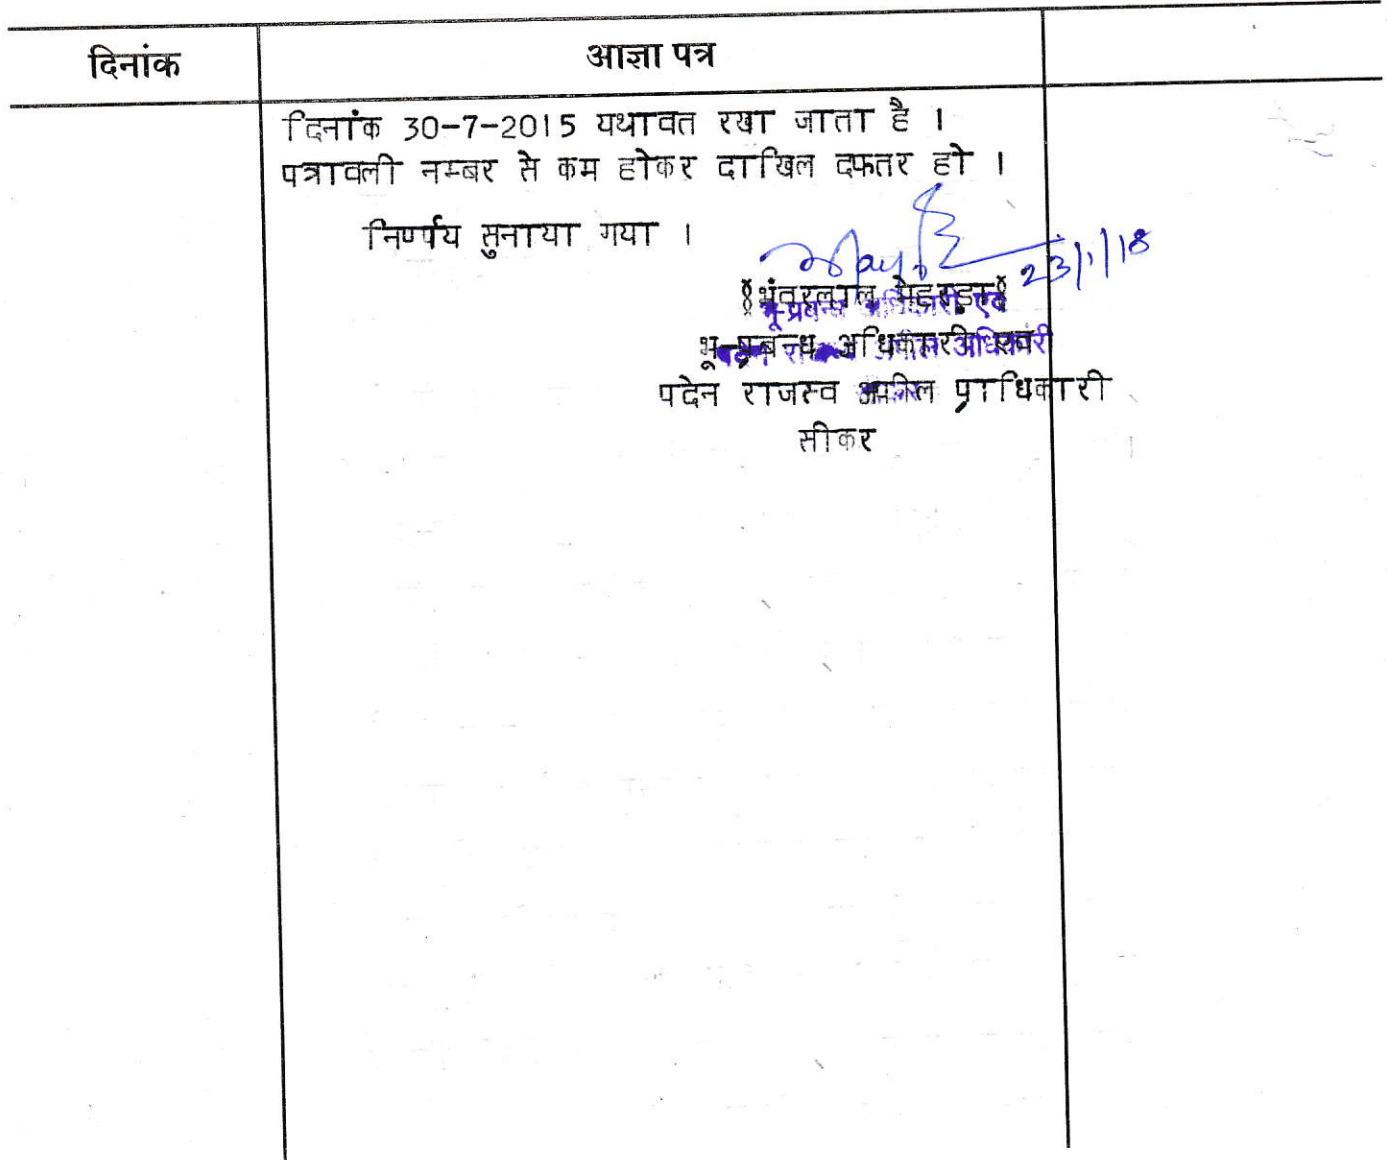 दिनांक आज्ञा पत्र
दिनांक 30-7-2015 यथावत रखा जाता है ।
पत्रावली नम्बर से कम होकर दाखिल दफतर हो ।
निर्णय सुनाया गया ।
23/1/18
भंवरलाल
भू-प्रबन्ध अधिकारी एवं
भू-प्रबन्ध अधिकारी एवं
पदेन राजस्व अपील प्राधिकारी
सीकर